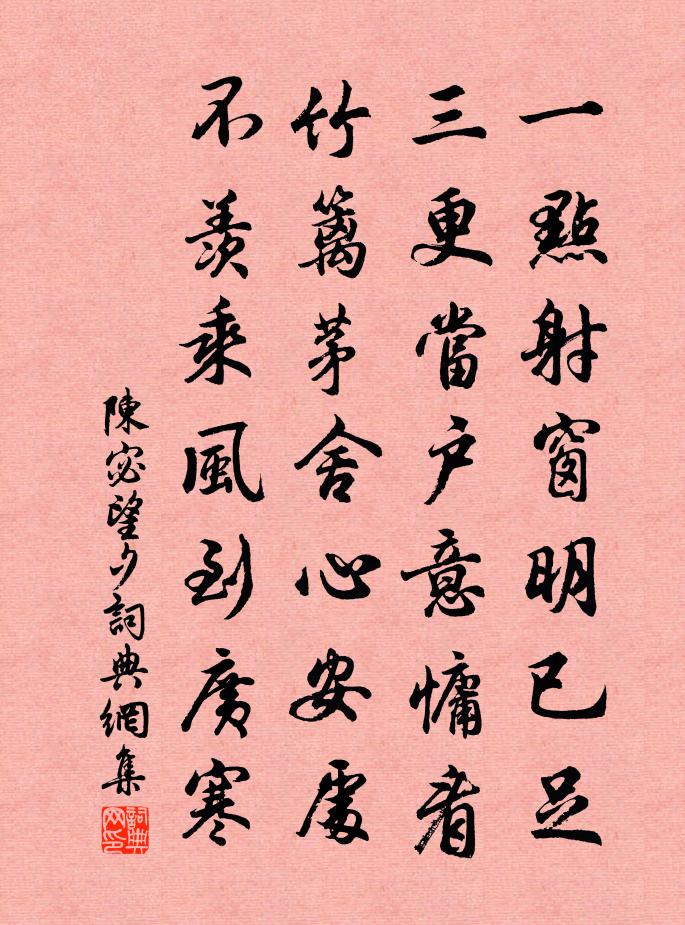 一點射窗明已足
三更當户意慵看
竹籬茅舍心安處
不羨乘風到廣寒
陳宓望夕詞典網集
詞典网印